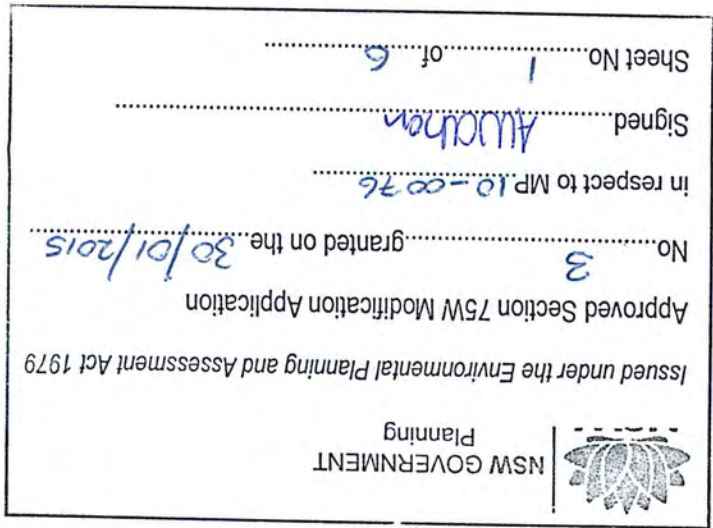 NSW GOVERNMENT
Planning
Issued under the Environmental Planning and Assessment Act 1979
Approved Section 75W Modification Application
No.......3.......granted on the 30/01/2015
in respect to MP.10-0076
Signed
Sheet No.......1.......of.......6